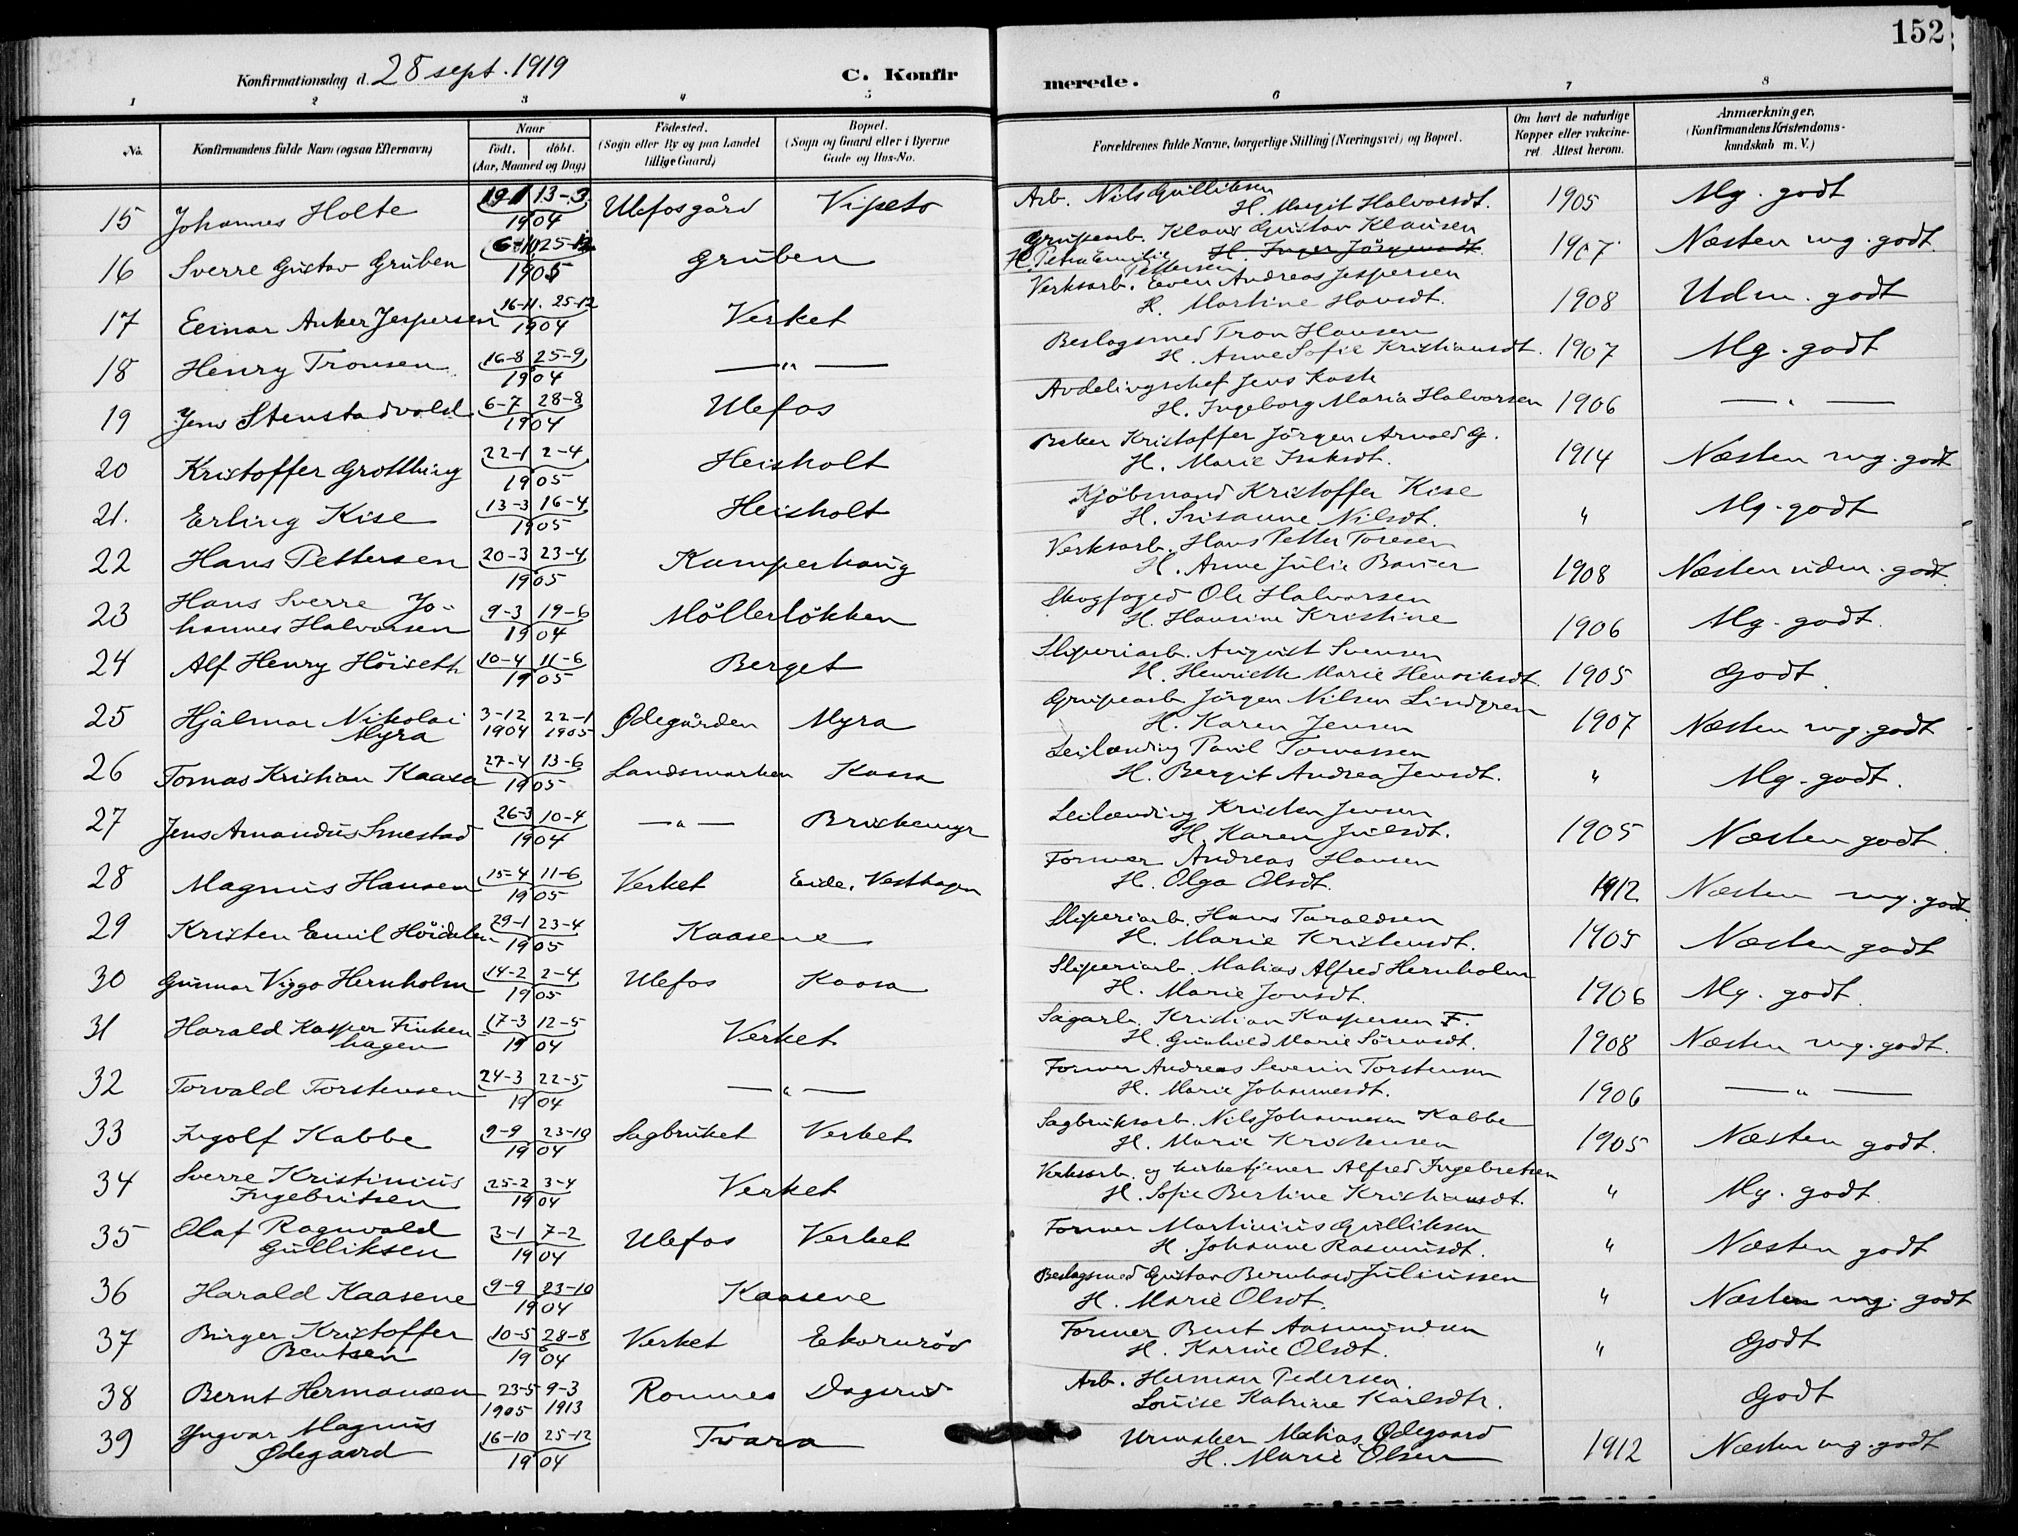 152
Konfirmationsdag d. 28 sept. 1919
C. Konfirmerede.
1 2 3 4 5 6 7 8
No. Konfirmandens fulde Navn (ogsaa Efternavn)
Naar født. døbt. (Aar, Maaned og Dag)
Fødested. (Sogn eller By og paa Landet tillige Gaard)
Bopæl. (Sogn og Gaard eller i Byerne Gade og Hus-No.
Forældrenes fulde Navne, borgerlige Stilling (Næringsvei) og Bopæl.
Om havt de naturlige Kopper eller vakcineret. Attest herom.
Anmærkninger. (Konfirmandens Kristendomskundskab m. V.)
15 Johannes Holte 19-1 13-3 1904 Ulefosgård Vipeto Arb. Nils Gulliksen 1905 Mg. godt
H. Margit Halvorsdt.
16 Sverre Gustav Gruben 6-10 25-12 1905 Gruben Grubearb. Klaus Gustav Klausen 1907 Næsten mg. godt
H. Petra Emilie Pettersen H. Inger Jörgensdt.
17 Einar Anker Jespersen 16-11. 25-12 1904 Verket Verksarb. Even Andreas Jespersen 1908 Udm. godt
H. Martine Hansdt.
18 Henry Tronsen 16-8 25-9 1904 —"— Beslagsmed Tron Hansen 1907 Mg. godt
H. Anne Sofie Kristiansdt.
19 Jens Stenstadvold 6-7 28-8 1904 Ulefos Avdelingschef Jens Kaste 1906 —"—
H. Ingeborg Maria Halvorsen
20 Kristoffer Grotthing 22-1 2-4 1905 Heisholt Baker Kristoffer Jörgen Arnold G. 1914 Næsten mg. godt
H. Marie Isaksdt.
21. Erling Kise 13-3 16-4 1905 Heisholt Kjöbmand Kristoffer Kise " Mg. godt
H. Susanne Nilsdt.
22 Hans Pettersen 20-3 23-4 1905 Kamperhaug Verksarb. Hans Petter Toresen 1908 Næsten udm. godt
H. Anne Julie Bauer
23 Hans Sverre Jo- 9-3 19-6 1904 Möllerlökken Skogfoged Ole Halvorsen 1906 Mg. godt.
hannes Halvorsen H. Hansine Kristine
24 Alf Henry Höiseth 10-4 11-6 1905 Berget Sliperiarb. August Svensen 1905 Godt.
H. Henriette Marie Henriksdt.
25 Hjalmar Nikolai 3-12 1904 22-1 1905 Ødegården Myra Grubearb Jörgen Nilsen Lindgren 1907 Næsten mg. godt
Myra H. Karen Jensen
26 Tomas Kristian Kaasa 27-4 13-6 1905 Landsmarken Kaasa Leilænding Paul Tomassen " Mg. godt.
H. Bergit Andrea Jensdt.
27 Jens Amandus Smestad 26-3 10-4 1904 —"— Briskemyr Leilænding Kristen Jensen 1905 Næsten godt.
H. Karen Julsdt.
28 Magnus Hansen 15-4 11-6 1905 Verket Eide, Vesthagen Former Andreas Hansen 1912 Næsten mg. godt
H. Olga Olsdt.
29 Kristen Emil Höidalen 29-1 23-4 1905 Kaasene Sliperiarb. Hans Taraldsen 1905 Næsten godt
H. Marie Kristensdt.
30 Gunnar Viggo Hernholm 14-2 2-4 1905 Ulefos Kaasa Sliperiarb. Matias Alfred Hernholm 1906 Mg. godt.
H. Marie Jonsdt.
31 Harald Kasper Finken 17-3 12-5 1904 Verket Sagarb. Kristian Kaspersen F. 1908 Næsten mg. godt.
hagen H. Gunhild Marie Sörensdt.
32 Torvald Torstensen 24-3 22-5 1904 —"— Former Andreas Severin Torstensen 1906 —"—
H. Marie Johannesdt.
33 Ingolf Kabbe 9-9 23-10 1904 Sagbruket Verket Sagbruksarb. Nils Johannesen Kabbe 1905 Næsten godt.
H. Marie Kristensen
34 Sverre Kristinius 25-2 3-4 1904 Verket Verksarb. og kirketjener Alfred Ingebretsen " Mg. godt.
Ingebritsen H. Sofie Bertine Kristiansdt.
35 Olaf Ragnvald 3-1 7-2 1904 Ulefos Verket Former Martinius Gulliksen " Næsten godt
Gulliksen H. Johanne Rasmusdt.
36 Harald Kaasene 9-9 23-10 1904 Kaasene Beslagsmed Gustav Bernhard Juliussen " Næsten mg. godt
H. Marie Olsdt.
37 Birger Kristoffer 10-5 28-8 1904 Verket Ekornrød Former Bent Aasmundsen " Godt
Bentsen H. Karine Olsdt.
38 Bernt Hermansen 23-5 1905 9-3 1913 Romnes Dagsrud Arb. Herman Pedersen. Godt
Louise Katrine Karlsdtr.
39 Yngvar Magnus 16-10 25-12 1904 Tvara Urmaker Matias Ødegaard 1912 Næsten mg. godt
Ødegaard H. Marie Olsen